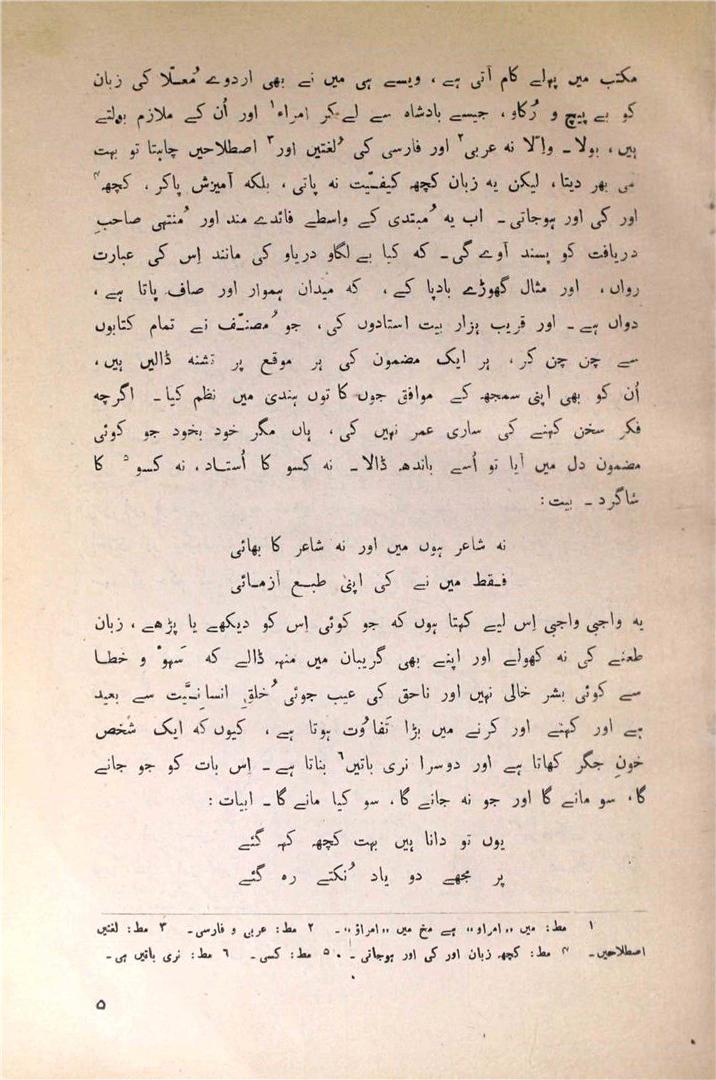 مکتب میں پہلے کام آتی ہے، ویسے ہی میں نے بھی اردوے مُعلّا کی زبان
کو بے پیچ و رُکاو، جیسے بادشاہ سے لے کر امراء۱ اور اُن کے ملازم بولتے
ہیں، بولا۔ واِلّا نہ عربی۲ اور فارسی کی لُغتیں اور۳ اصطلاحیں چاہتا تو بہت
سی بھر دیتا، لیکن یہ زبان کچھ کیفیّت نہ پاتی، بلکہ آمیزش پاکر، کچھ۴
اور کی اور ہوجاتی۔ اب یہ مُبتدی کے واسطے فائدے مند اور مُنتہی صاحبِ
دریافت کو پسند آوے گی۔ کہ کیا بے لگاو دریاو کی مانند اِس کی عبارت
رواں، اور مثال گھوڑے بادپا کے، کہ میدان ہموار اور صاف پاتا ہے،
دواں ہے۔ اور قریب ہزار بیت استادوں کی، جو مُصنّف نے تمام کتابوں
سے چن چن کر، ہر ایک مضمون کی ہر موقع پر تشنہ ڈالیں ہیں،
اُن کو بھی اپنی سمجھ کے موافق جوں کا توں ہندی میں نظم کیا۔ اگرچہ
فکر سخن کہنے کی ساری عمر نہیں کی، ہاں مگر خود بخود جو کوئی
مضمون دل میں آیا تو اُسے باندھ ڈالا۔ نہ کسو کا اُستاد، نہ کسو۵ کا
شاگرد۔ بیت:
نہ شاعر ہوں میں اور نہ شاعر کا بھائی
فقط میں نے کی اپنی طبع آزمائی
یہ واجبی واجبی اِس لیے کہتا ہوں کہ جو کوئی اِس کو دیکھے یا پڑھے، زبان
طعنے کی نہ کھولے اور اپنے بھی گریبان میں منہ ڈالے کہ سَہْو و خطا
سے کوئی بشر خالی نہیں اور ناحق کی عیب جوئی خُلقِ انسانِیَّت سے بعید
ہے اور کہنے اور کرنے میں بڑا تَفاوُت ہوتا ہے، کیوں کہ ایک شخص
خونِ جگر کھاتا ہے اور دوسرا نری باتیں۶ بناتا ہے۔ اِس بات کو جو جانے
گا، سو مانے گا اور جو نہ جانے گا، سو کیا مانے گا۔ ابیات:
یوں تو دانا ہیں بہت کچھ کہہ گئے
پر مجھے دو یاد نُکتے رہ گئے
۱ مط: میں ”امراو“ ہے مخ میں ”امراؤ“۔ ۲ مط: عربی و فارسی۔ ۳ مط: لغتیں
اصطلاحیں۔ ۴ مط: کچھ زبان اور کی اور ہوجاتی۔ ۵ مط: کسی۔ ۶ مط: نری باتیں ہی۔
۵